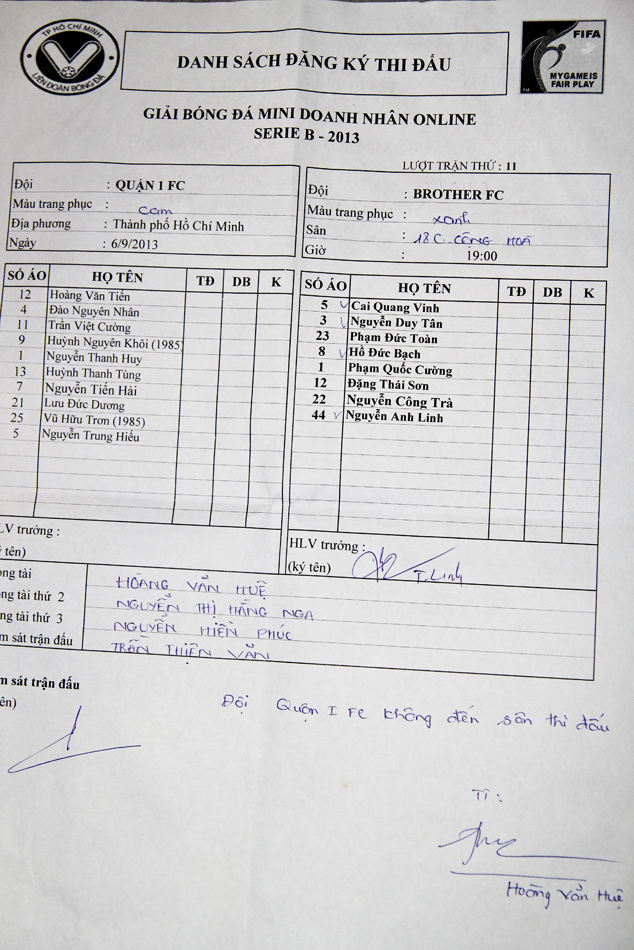 TP HỒ CHÍ MINH
LIÊN ĐOÀN BÓNG ĐÁ
DANH SÁCH ĐĂNG KÝ THI ĐẤU
FIFA
MY GAME IS
FAIR PLAY
GIẢI BÓNG ĐÁ MINI DOANH NHÂN ONLINE
SERIE B - 2013
LƯỢT TRẬN THỨ : 11
Đội : QUẬN 1 FC
Màu trang phục : cam
Địa phương : Thành phố Hồ Chí Minh
Ngày : 6/9/2013
Đội : BROTHER FC
Màu trang phục : xanh
Sân : 18 C. CỘNG HOÀ
Giờ : 19:00
SỐ ÁO HỌ TÊN TĐ DB K
12 Hoàng Văn Tiến
4 Đào Nguyên Nhân
11 Trần Việt Cường
9 Huỳnh Nguyên Khôi (1985)
1 Nguyễn Thanh Huy
13 Huỳnh Thanh Tùng
7 Nguyễn Tiến Hải
21 Lưu Đức Dương
25 Vũ Hữu Trơn (1985)
5 Nguyễn Trung Hiếu
SỐ ÁO HỌ TÊN TĐ DB K
5 Cai Quang Vinh
3 Nguyễn Duy Tân
23 Phạm Đức Toàn
8 Hồ Đức Bạch
1 Phạm Quốc Cường
12 Đặng Thái Sơn
22 Nguyễn Công Trà
44 Nguyễn Anh Linh
LV trưởng :
ý tên)
HLV trưởng :
(ký tên) T. Linh
ọng tài HOÀNG VĂN HUỆ
ng tài thứ 2 NGUYỄN THỊ HẰNG NGA
ng tài thứ 3 NGUYỄN HIỀN PHÚC
m sát trận đấu TRẦN THIỆN VĂN
m sát trận đấu
ên)
Đội Quận I FC không đến sân thi đấu
TT :
Hoàng Văn Huệ